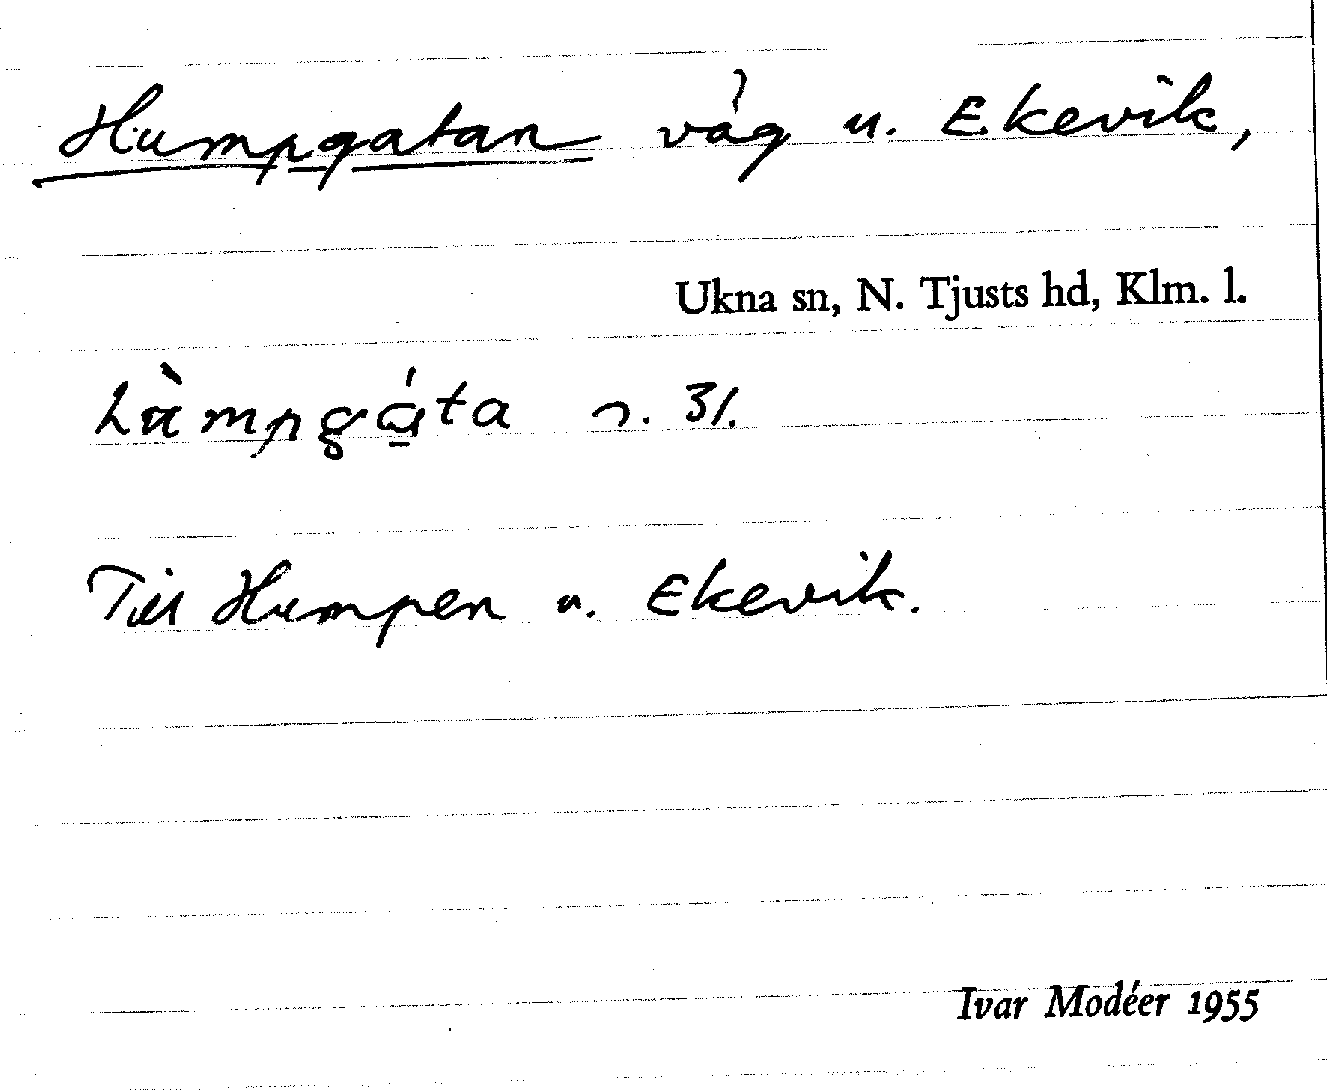 Humpgatan våg u. Ekevik,
Ukna sn, N. Tjusts hd, Klm. l.
n. 31.
Till Humpen u. Ekevik.
Ivar Modéer 1955